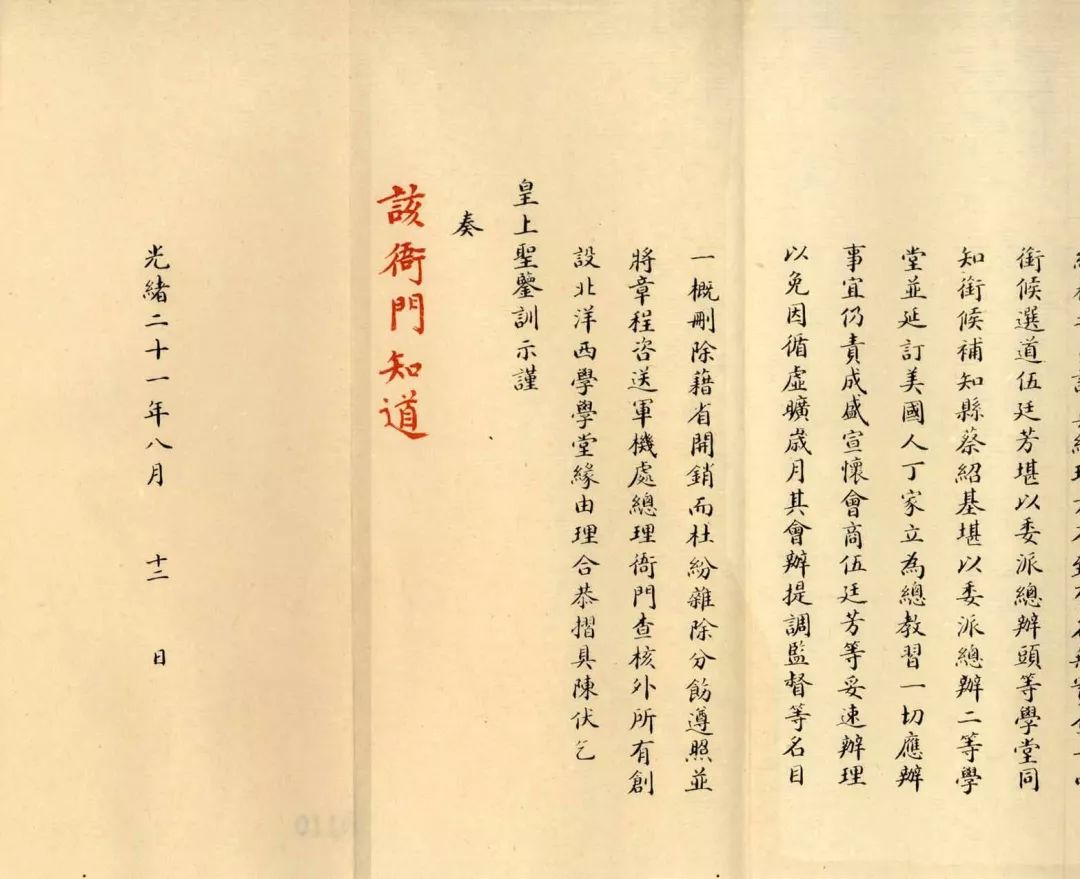 銜候選道伍廷芳堪以委派總辦頭等學堂同
知銜候補知縣蔡紹基堪以委派總辦二等學
堂並延訂美國人丁家立為總教習一切應辦
事宜仍責成盛宣懷會商伍廷芳等妥速辦理
以免因循虛曠歲月其會辦提調監督等名目
一概刪除藉省開銷而杜紛雜除分飭遵照並
將章程咨送軍機處總理衙門查核外所有創
設北洋西學學堂緣由理合恭摺具陳伏乞
皇上聖鑒訓示謹
奏
該衙門知道
光緒二十一年八月 十二 日